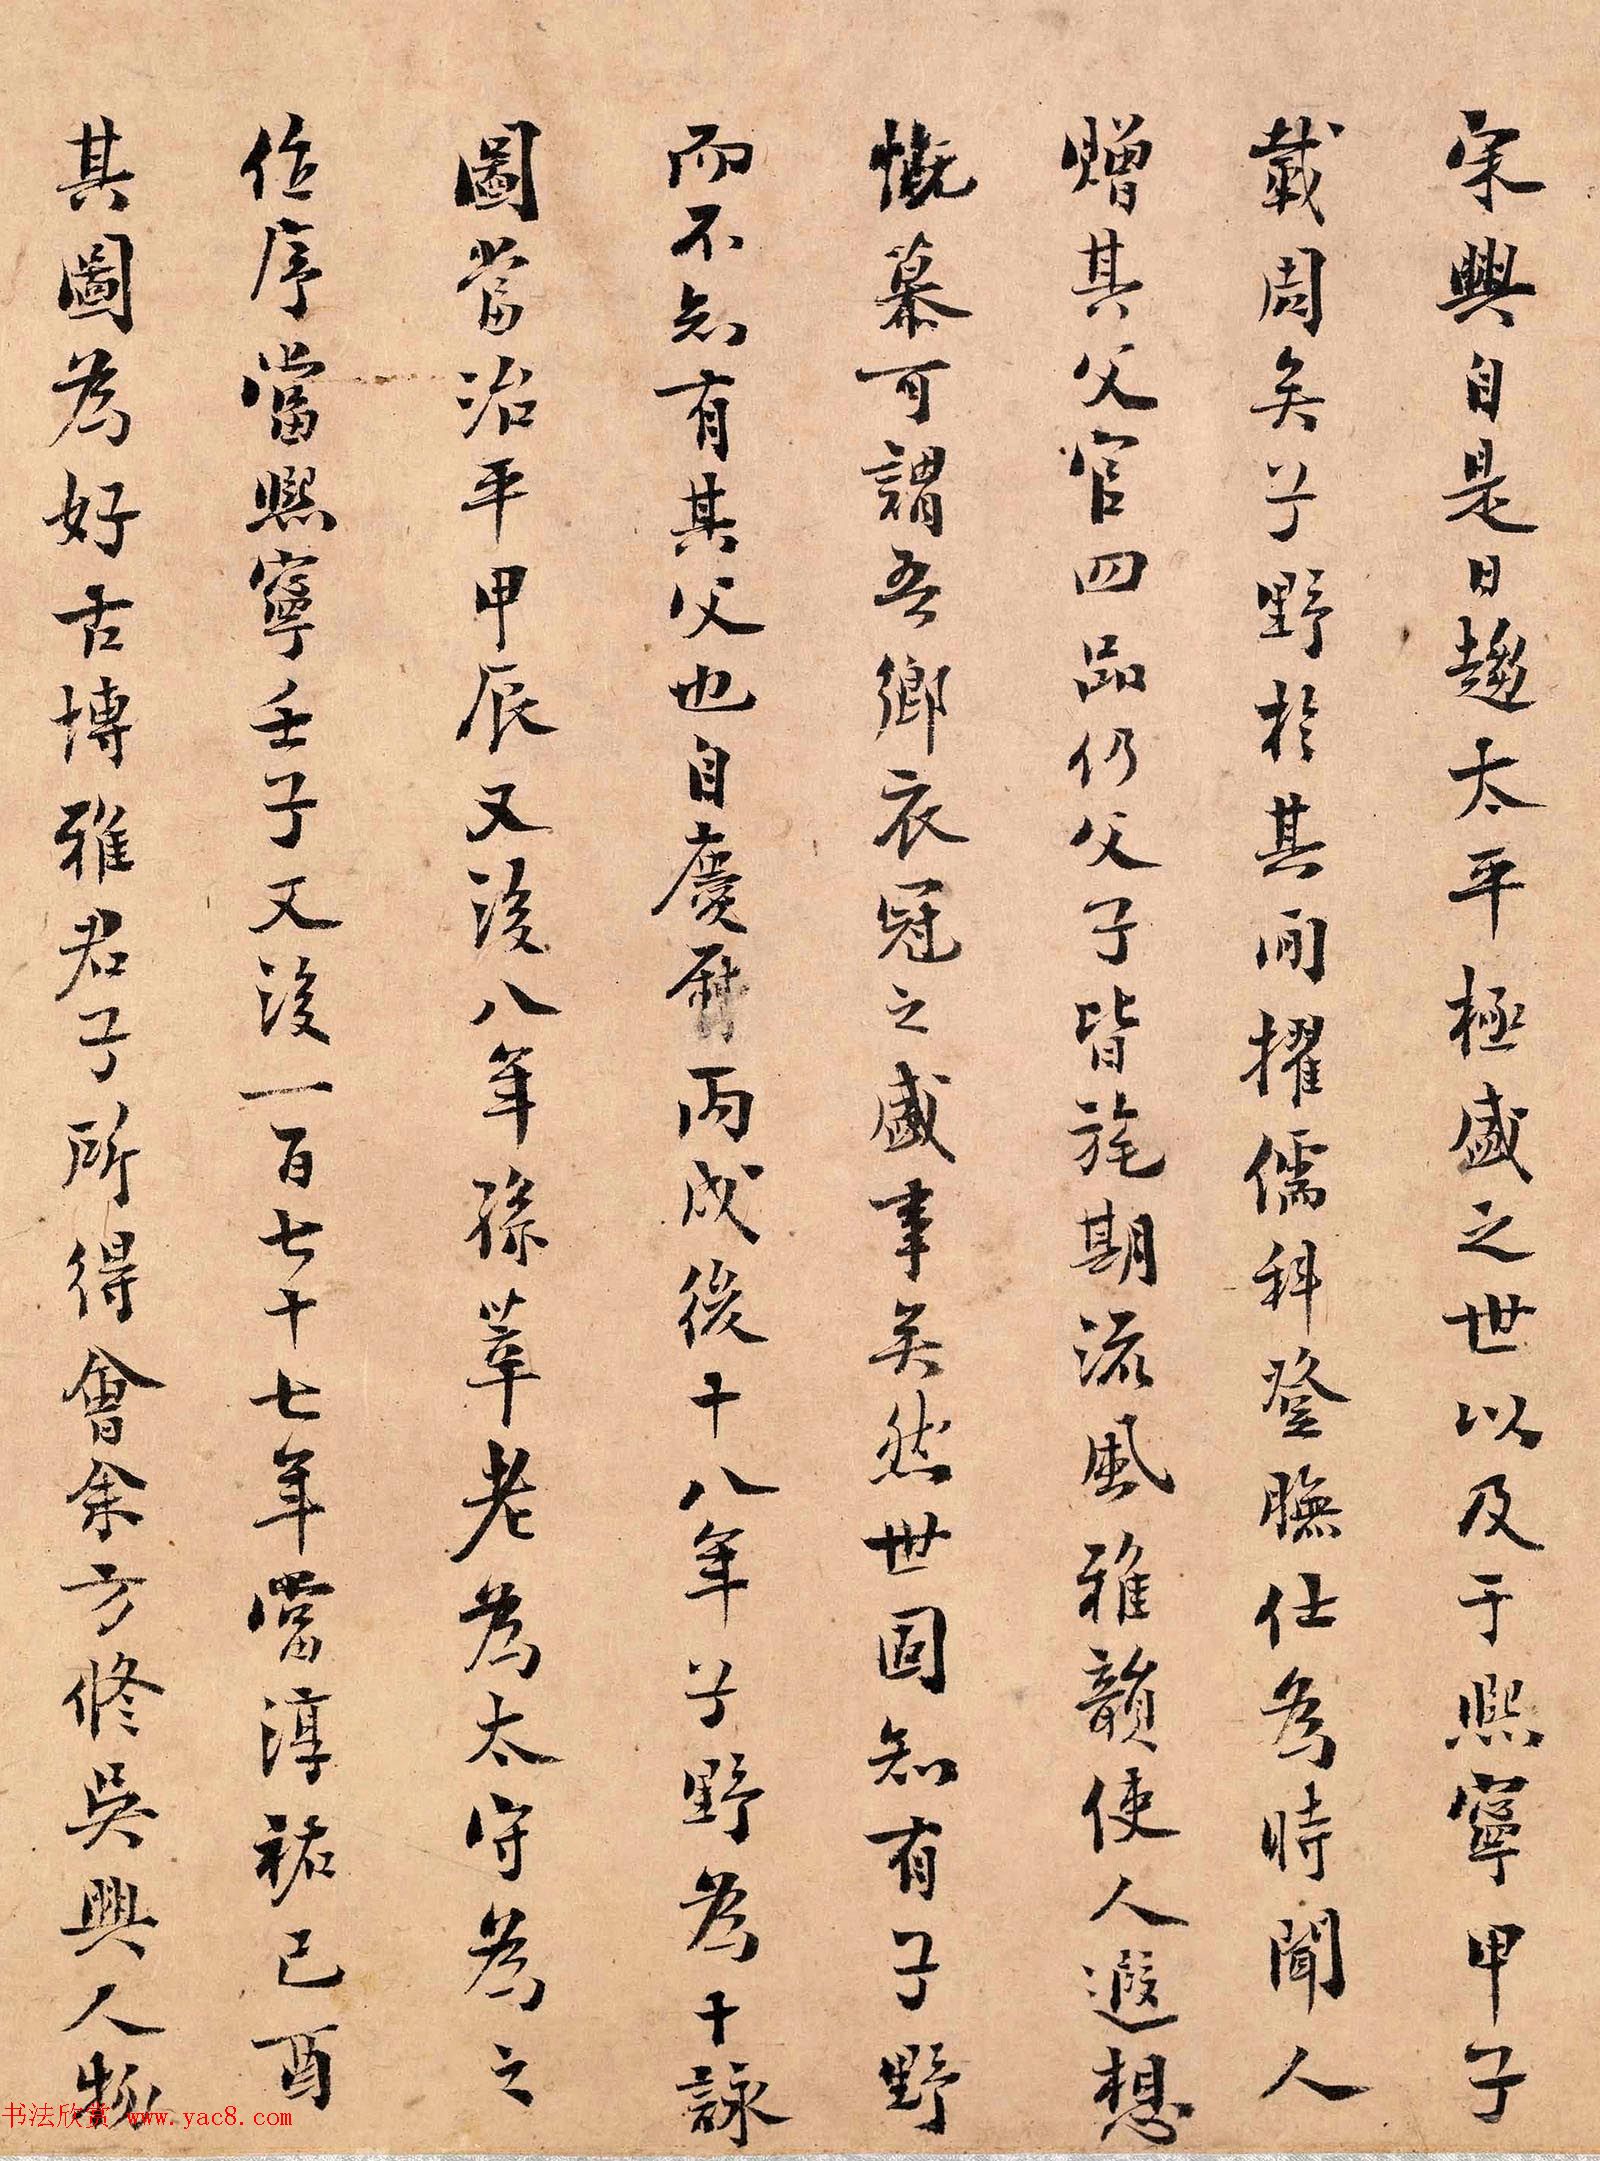 宋興自是日趨太平極盛之世以及于熙寧甲子
載周矣子野於其間擢儒科登膴仕為時聞人
贈其父官四品仍父子皆旄期流風雅韻使人遐想
慨慕可謂吾鄉衣冠之盛事矣然世固知有子野
而不知有其父也自慶曆丙戌後十八年子野為十詠
圖當治平甲辰又後八年孫莘老為太守為之
位序當熙寧壬子又後一百七十七年當淳祐己酉
其圖為好古博雅君子所得會余方修吳興人物
书法欣赏 www.yac8.com